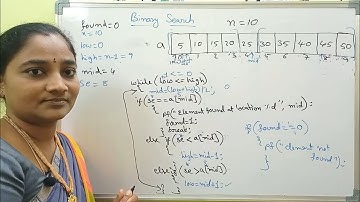 found=0
Binary Search
n=10
low=0
high=n-1=9
mid=4
se=8
a 5 10 15 20 25 30 35 40 45 50
while(low<=high)
if(se==a[mid])
{
pf("Element found at location %d", mid);
found=1;
break;
}
else if(se<a[mid])
high=mid-1;
else if(se>a[mid])
low=mid+1;
if(found==0)
{
pf("element not
found");
}